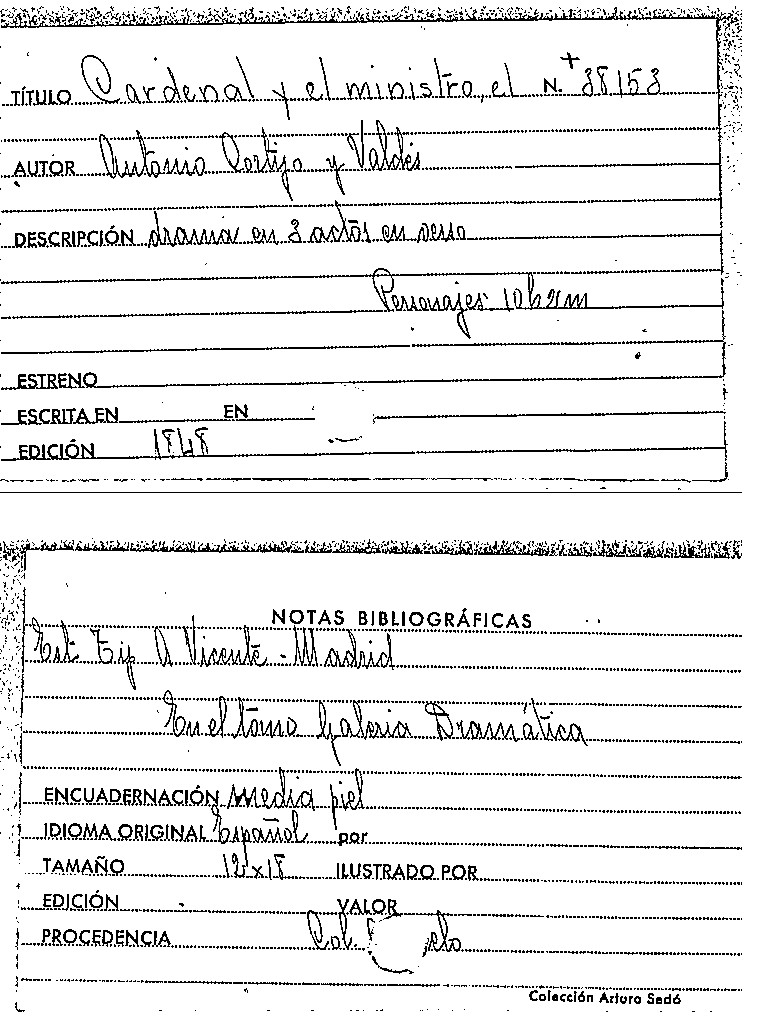 TÍTULO Cardenal y el ministro, el N.+ 38153
AUTOR Antonio Cortijo y Valdés
DESCRIPCIÓN drama en 3 actos en verso
Personajes: 10h 2m
ESTRENO
ESCRITA EN EN
EDICIÓN 1848
NOTAS BIBLIOGRÁFICAS
Est. Tip A Vicente - Madrid
En el tomo Galeria Dramática
ENCUADERNACIÓN media piel
IDIOMA ORIGINAL Español por
TAMAÑO 12x18 ILUSTRADO POR
EDICIÓN VALOR
PROCEDENCIA Col.
Colección Arturo Sedó